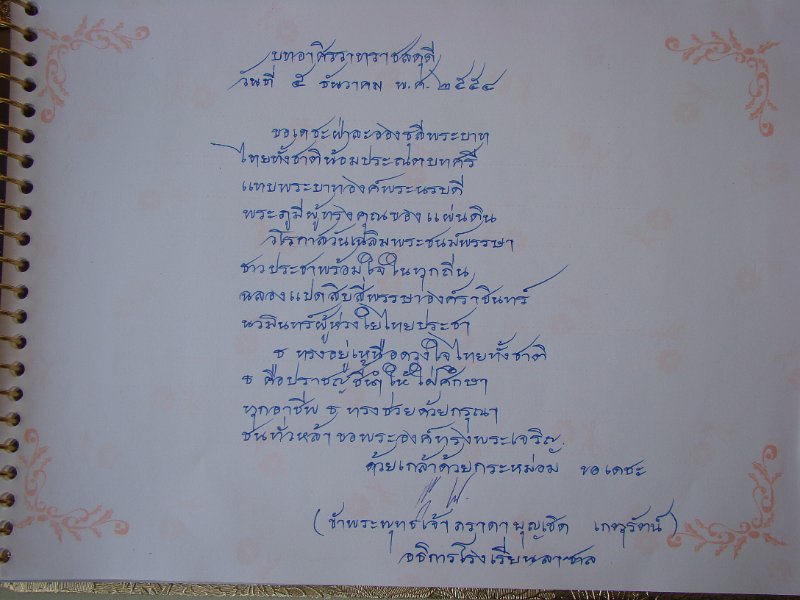 บทอาศิรวาทราชสดุดี
วันที่ ๕ ธันวาคม พ.ศ. ๒๕๕๔
ขอเดชะฝ่าละอองธุลีพระบาท
ไทยทั้งชาติน้อมประณตบทศรี
แทบพระบาทองค์พระนรบดี
พระภูมีผู้ทรงคุณของแผ่นดิน
วโรกาสวันเฉลิมพระชนม์พรรษา
ชาวประชาพร้อมใจในทุกถิ่น
ฉลองแปดสิบสี่พรรษาองค์ราชินทร์
นวมินทร์ผู้ห่วงใยไทยประชา
ธ ทรงอยู่เหนือดวงใจไทยทั้งชาติ
ธ คือปราชญ์ชี้นำให้ใฝ่ศึกษา
ทุกอาชีพ ธ ทรงช่วยด้วยกรุณา
ชนทั่วหล้าขอพระองค์ทรงพระเจริญ
ด้วยเกล้าด้วยกระหม่อม ขอเดชะ
(ข้าพระพุทธเจ้า ภราดา บุญเชิด เกตุรัตน์)
อธิการโรงเรียนลาซาล